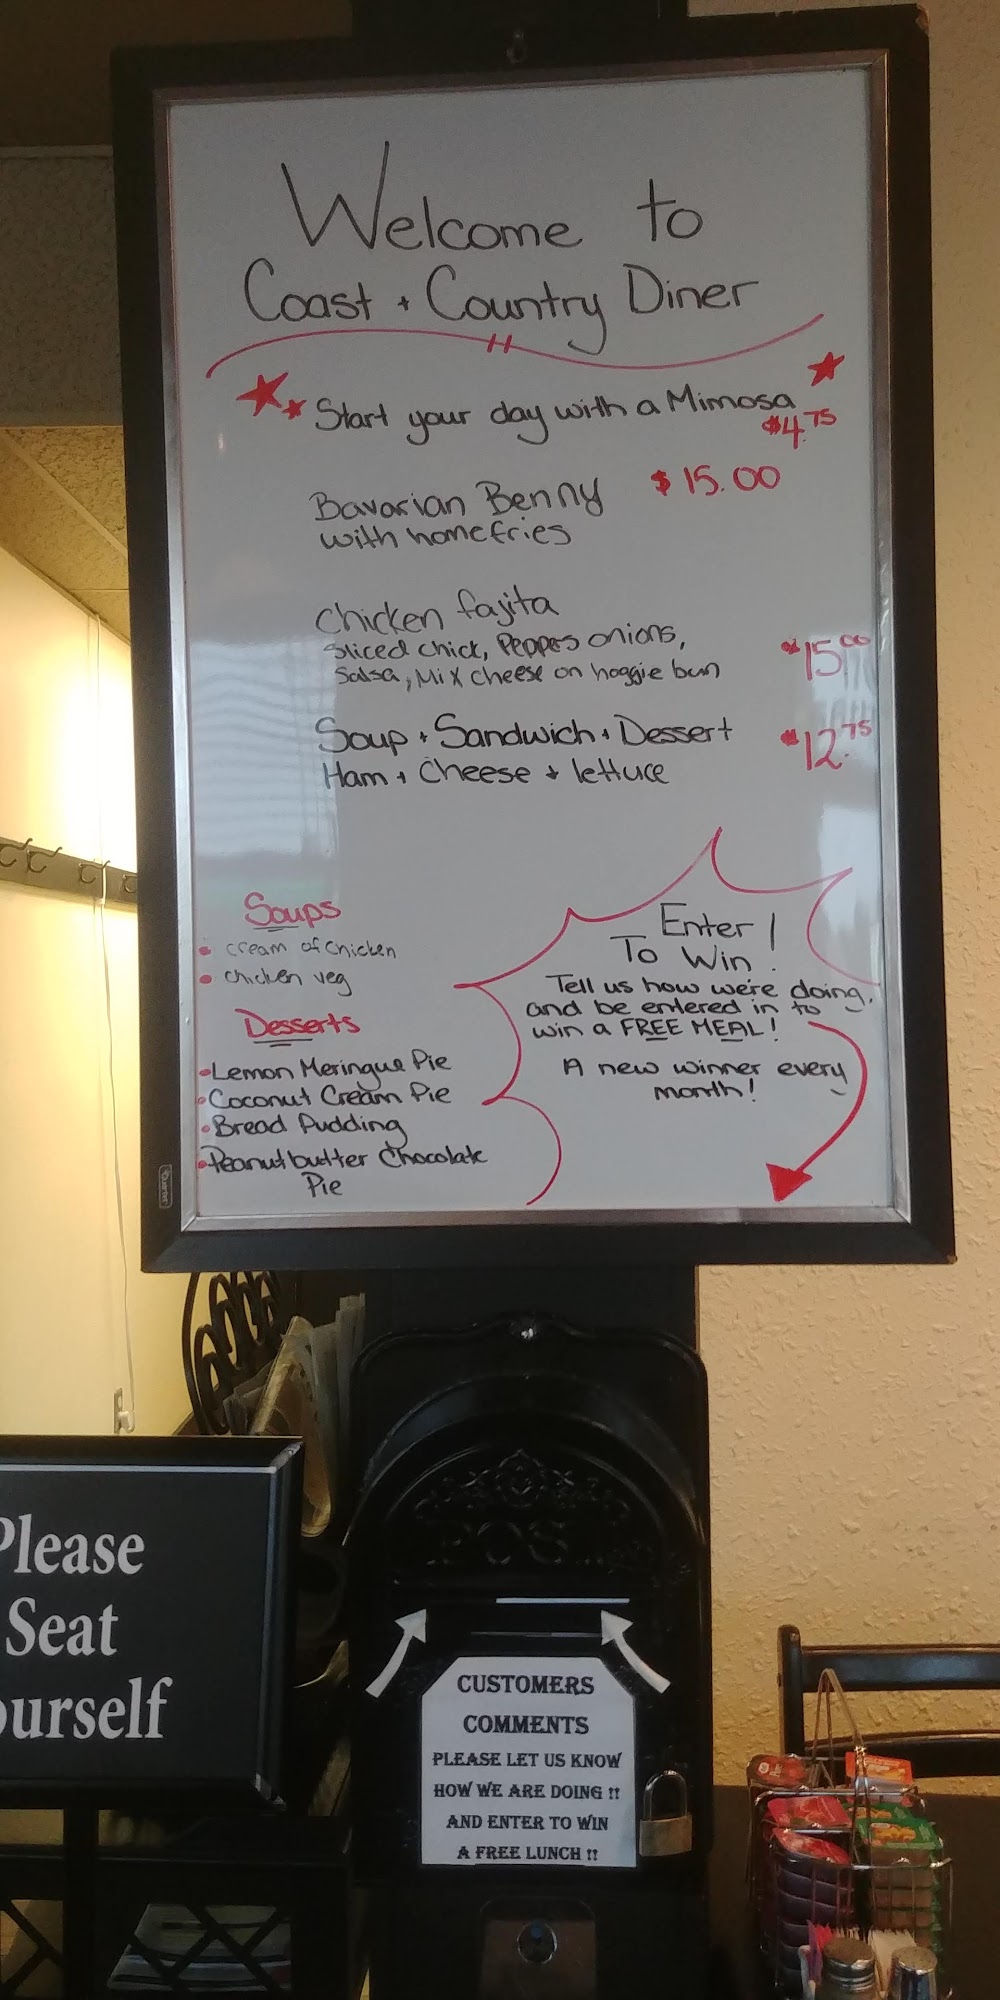 Welcome to
Coast + Country Diner
Start your day with a Mimosa
$4.75
Bavarian Benny $15.00
with homefries
Chicken fajita
Sliced chick, Peppers onions,
Salsa, Mix cheese on hoggie bun $15.00
Soup + Sandwich + Dessert $12.75
Ham + Cheese + lettuce
Soups
• cream of chicken
• chicken veg
Desserts
• Lemon Meringue Pie
• Coconut Cream Pie
• Bread Pudding
• Peanutbutter Chocolate
Pie
Enter
To Win!
Tell us how we're doing,
and be entered in to
win a FREE MEAL!
A new winner every
month!
Quartet
POST
Please
Seat
ourself
CUSTOMERS
COMMENTS
PLEASE LET US KNOW
HOW WE ARE DOING !!
AND ENTER TO WIN
A FREE LUNCH !!